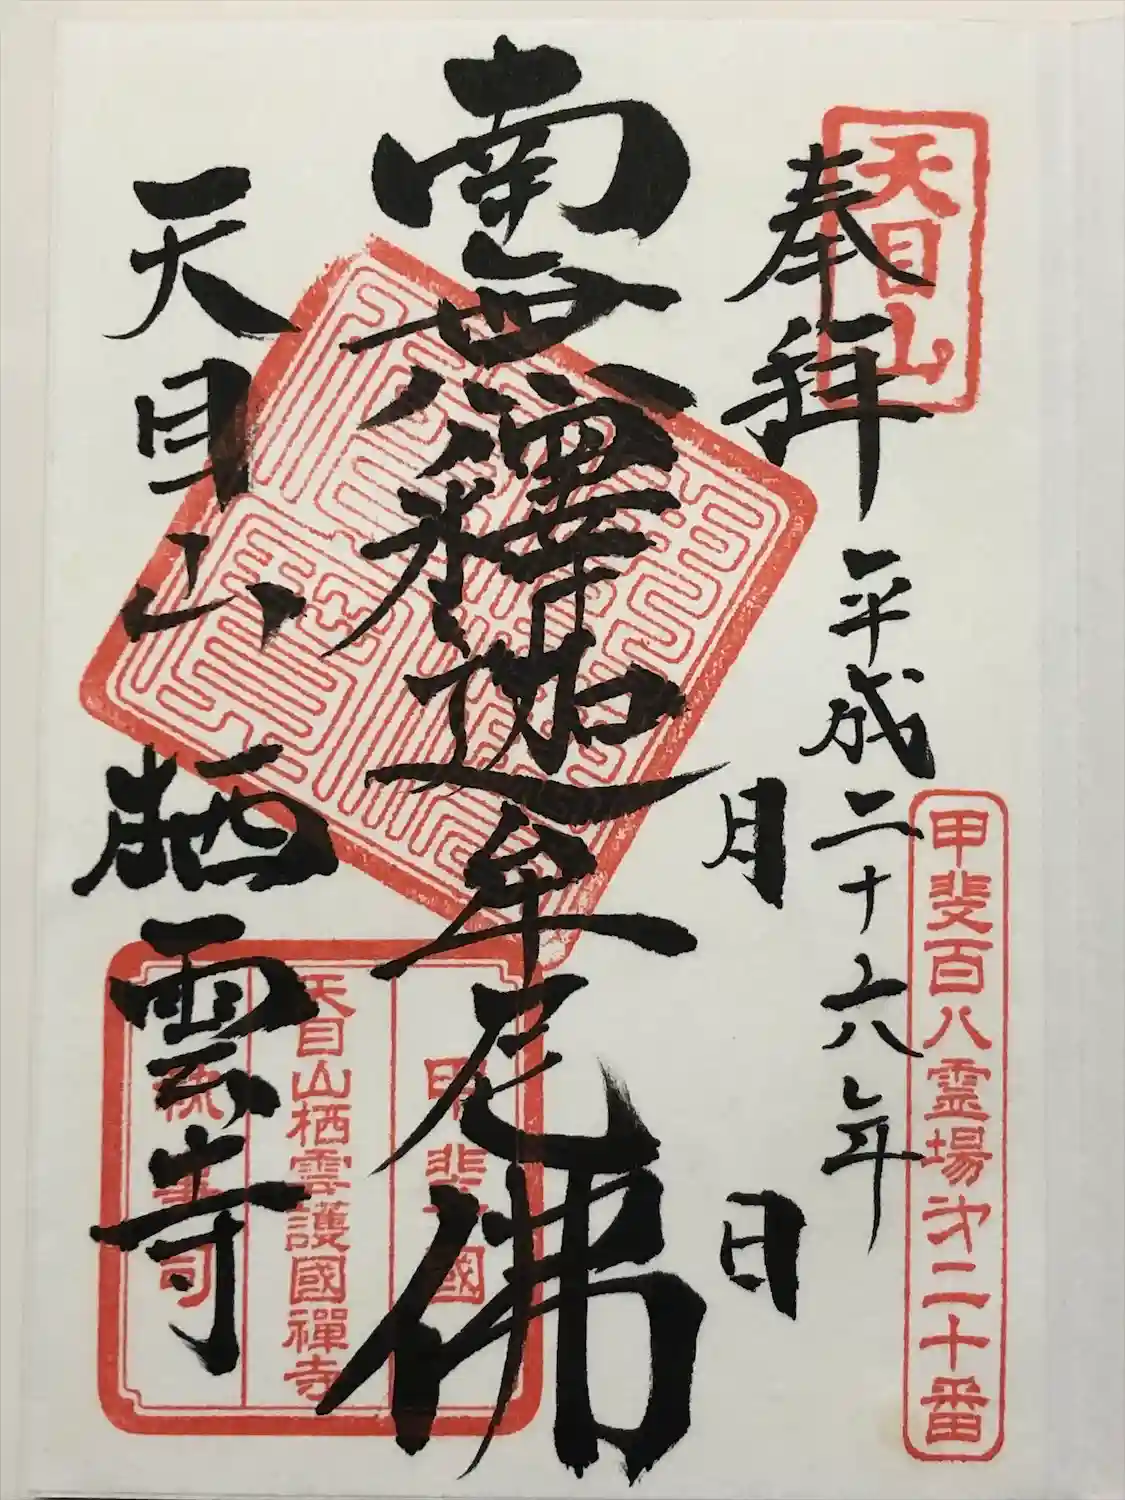 天目山
奉拝
平成二十六年
月 日
甲斐百八霊場㐧二十番
南無釋迦牟尼佛
天目山
栖雲寺
甲斐國
天目山栖雲護國禪寺
司